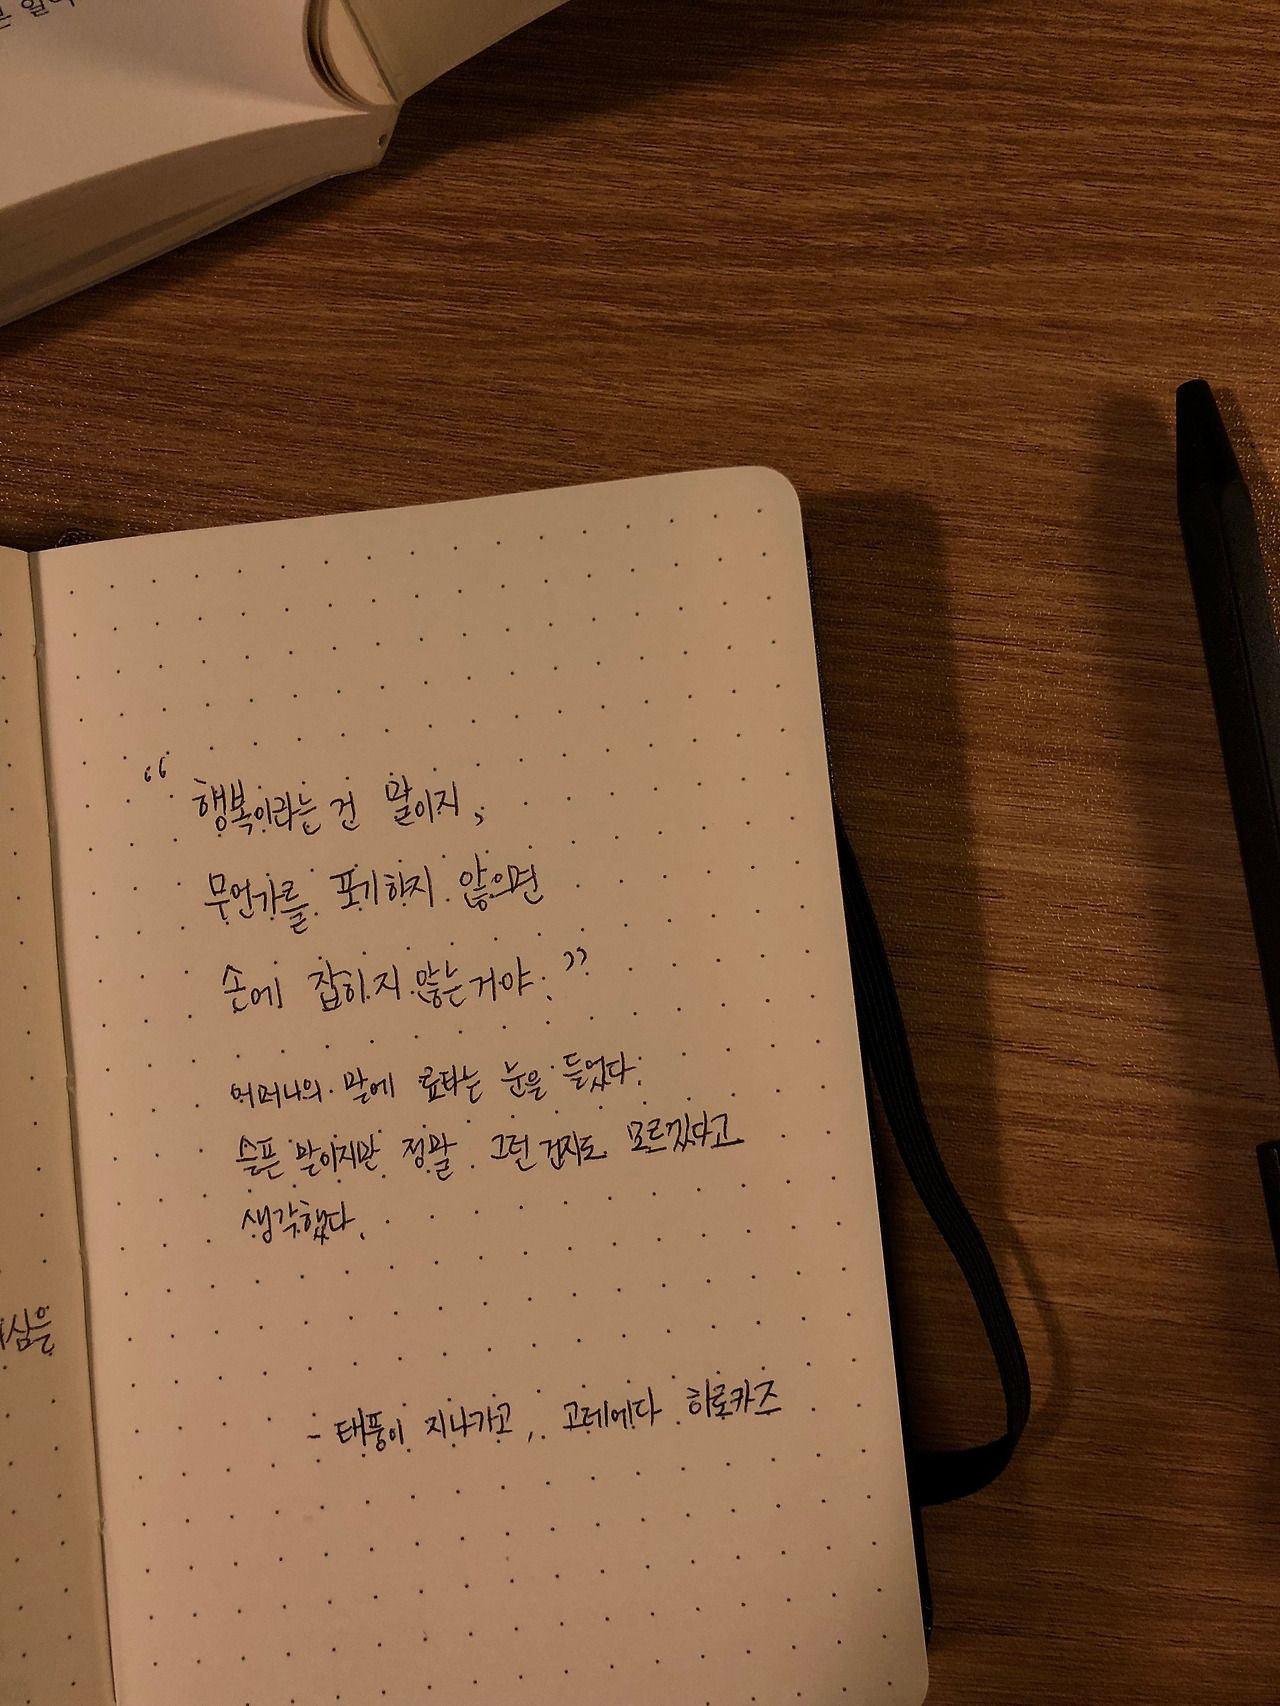 “행복이라는 건 말이지,
무언가를 포기하지 않으면
손에 잡히지 않는거야.”
어머니의 말에 료타는 눈을 들었다.
슬픈 말이지만 정말 그런 건지도 모르겠다고
생각했다.
- 태풍이 지나가고, 고레에다 히로카즈
심을